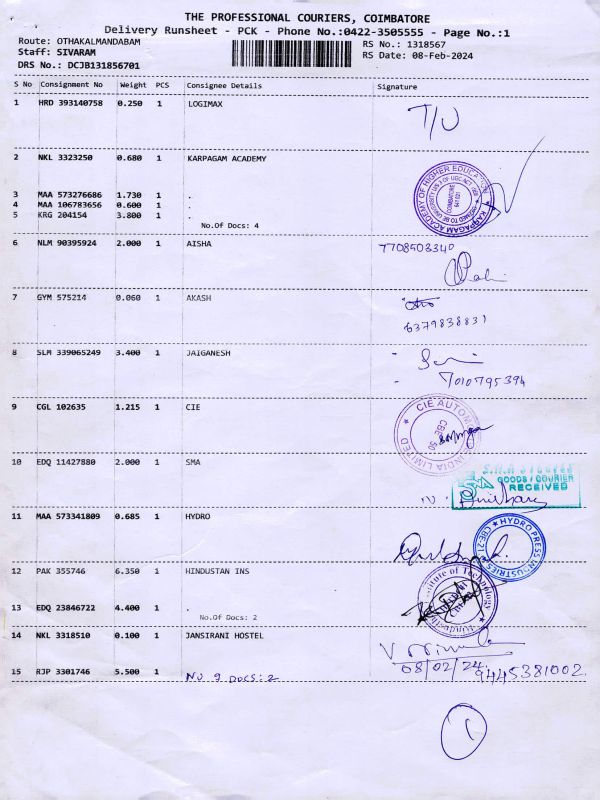 THE PROFESSIONAL COURIERS, COIMBATORE
Delivery Runsheet - PCK - Phone No.:0422-3505555 - Page No.:1
Route: OTHAKALMANDABAM
Staff: SIVARAM
DRS No.: DCJB131856701
RS No.: 1318567
RS Date: 08-Feb-2024
S No Consignment No Weight PCS Consignee Details Signature
1 HRD 393140758 0.250 1 LOGIMAX
T/U
2 NKL 3323250 0.680 1 KARPAGAM ACADEMY
KARPAGAM ACADEMY OF HIGHER EDUCATION
COIMBATORE 641 021
3 MAA 573276686 1.730 1 .
4 MAA 106783656 0.600 1 .
5 KRG 204154 3.800 1 .
No.Of Docs: 4
6 NLM 90395924 2.000 1 AISHA
7708503340
7 GYM 575214 0.060 1 AKASH
6379838831
8 SLM 339065249 3.400 1 JAIGANESH
7010795394
9 CGL 102635 1.215 1 CIE
CIE AUTOMOTIVE INDIA LIMITED
CBE-50
10 EDQ 11427880 2.000 1 SMA
GOODS / COURIER
RECEIVED
11 MAA 573341809 0.685 1 HYDRO
HYDRO PRESS INDUSTRIES
CBE-21
12 PAK 355746 6.350 1 HINDUSTAN INS
Hindusthan Institute of Technology
13 EDQ 23846722 4.400 1 .
No.Of Docs: 2
14 NKL 3318510 0.100 1 JANSIRANI HOSTEL
08/02/24
15 RJP 3301746 5.500 1
No 9 DOCS: 2
9445381002
1